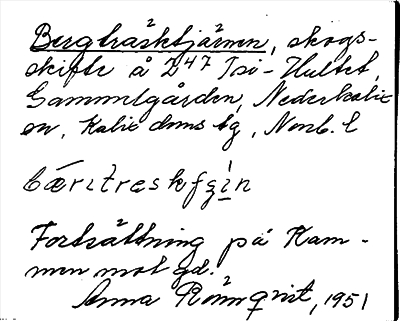 Bergträsktjärnen, skogs-
skifte å 2 47 Tsi-Hultet,
Gammelgården, Nederkalix-
on, Kalix dnms tg, Nonb. l
bǽrıtreskfgi̱n
Fortsättning på Kam-
men mot gd.
Anna Rönnqvist, 1951